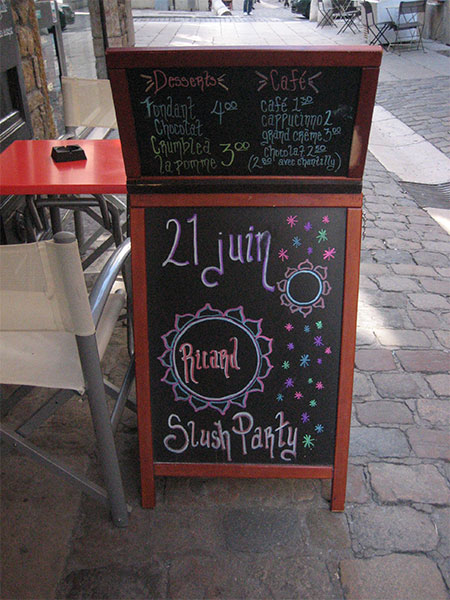 Desserts
Fondant Chocolat 4.00
Crumble a la pomme 3.00
Café
café 1.30
cappucinno 2.00
grand crème 3.00
chocolat 2.50
(2.80 avec chantilly)
21 juin
Ricard
Slush Party